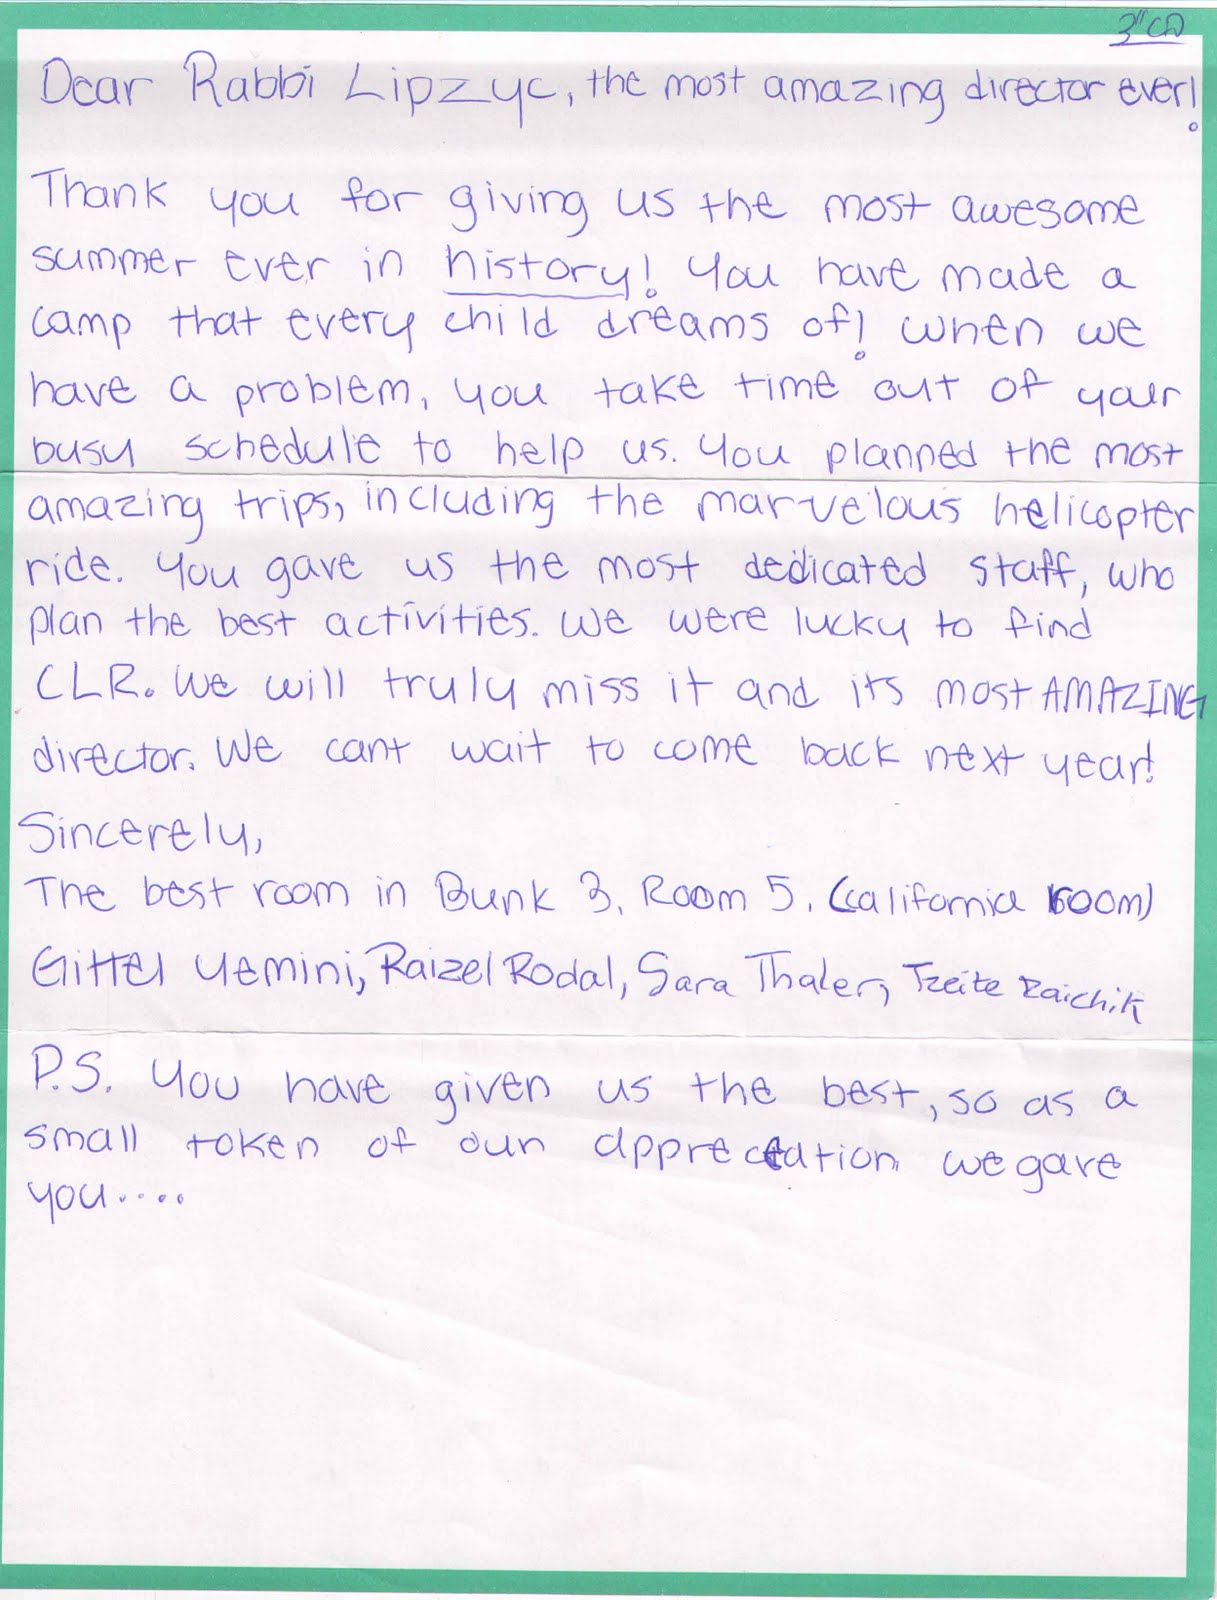 3"סד
Dear Rabbi Lipzyc, the most amazing director ever!
Thank you for giving us the most awesome
summer ever in history! You have made a
camp that every child dreams of! When we
have a problem, you take time out of your
busy schedule to help us. You planned the most
amazing trips, including the marvelous helicopter
ride. You gave us the most dedicated staff, who
plan the best activities. We were lucky to find
CLR. We will truly miss it and its most AMAZING
director. We cant wait to come back next year!
Sincerely,
The best room in Bunk 3, Room 5. (California room)
Gittel Yemini, Raizel Rodal, Sara Thaler, Tzeite Raichik
P.S. You have given us the best, so as a
small token of our appreciation we gave
you....